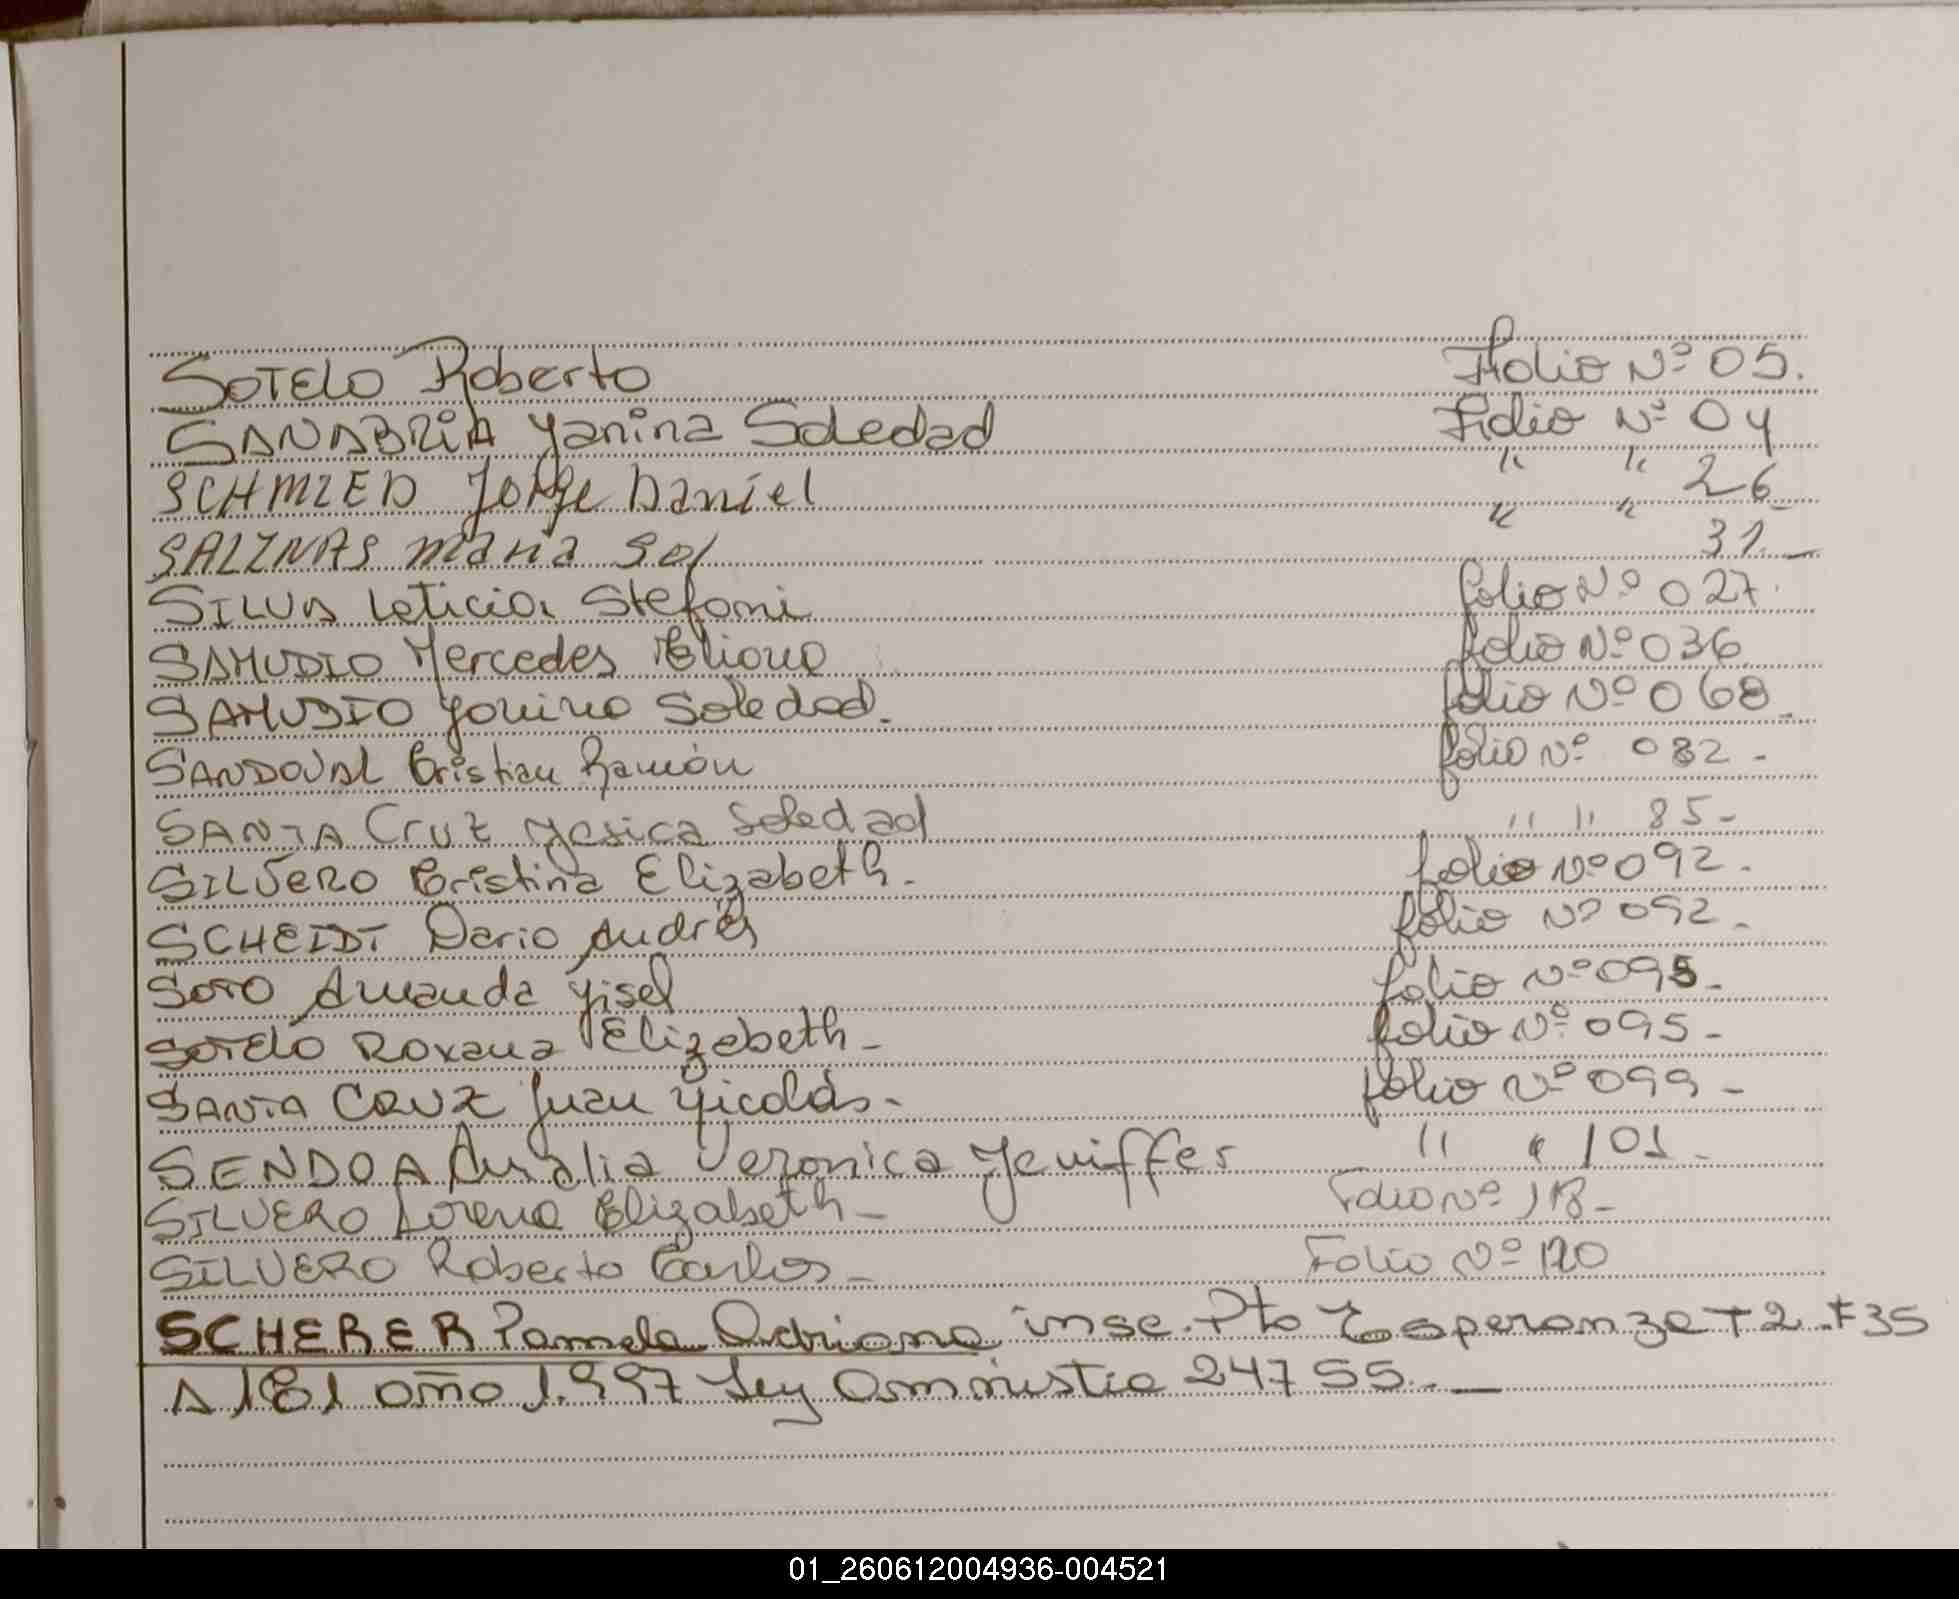 SOTELO Roberto Folio Nº 05.
SANABRIA Yanina Soledad Folio Nº 04
SCHMIED Jorge Daniel " " 26
SALINAS maria Sol " " 31.-
SILVA Leticia Stefani folio Nº 027.
SAMUDIO Mercedes Eliana folio Nº 036
SAMUDIO Yanina Soledad. folio Nº 068-
SANDOVAL Cristian Ramón folio Nº 082-
SANTA CRUZ Yesica Soledad " " 85-
SILVERO Cristina Elizabeth. folio Nº 092-
SCHEIDT Dario Andrés folio Nº 092-
SOTO Amanda Yisel folio Nº 095-
SOTELO Roxana Elizabeth- folio Nº 095-
SANTA CRUZ Juan Nicolás.- folio Nº 099-
SENDOA Analia Veronica Yeniffer " " 101-
SILVERO Lorena Elizabeth- Folio Nº 118-
SILVERO Roberto Carlos- Folio Nº 120
SCHERER Pamela Adriana insc. Pto Esperanza T2 F35
A/81 año 1.997 Ley amnistia 24755.-
01_260612004936-004521